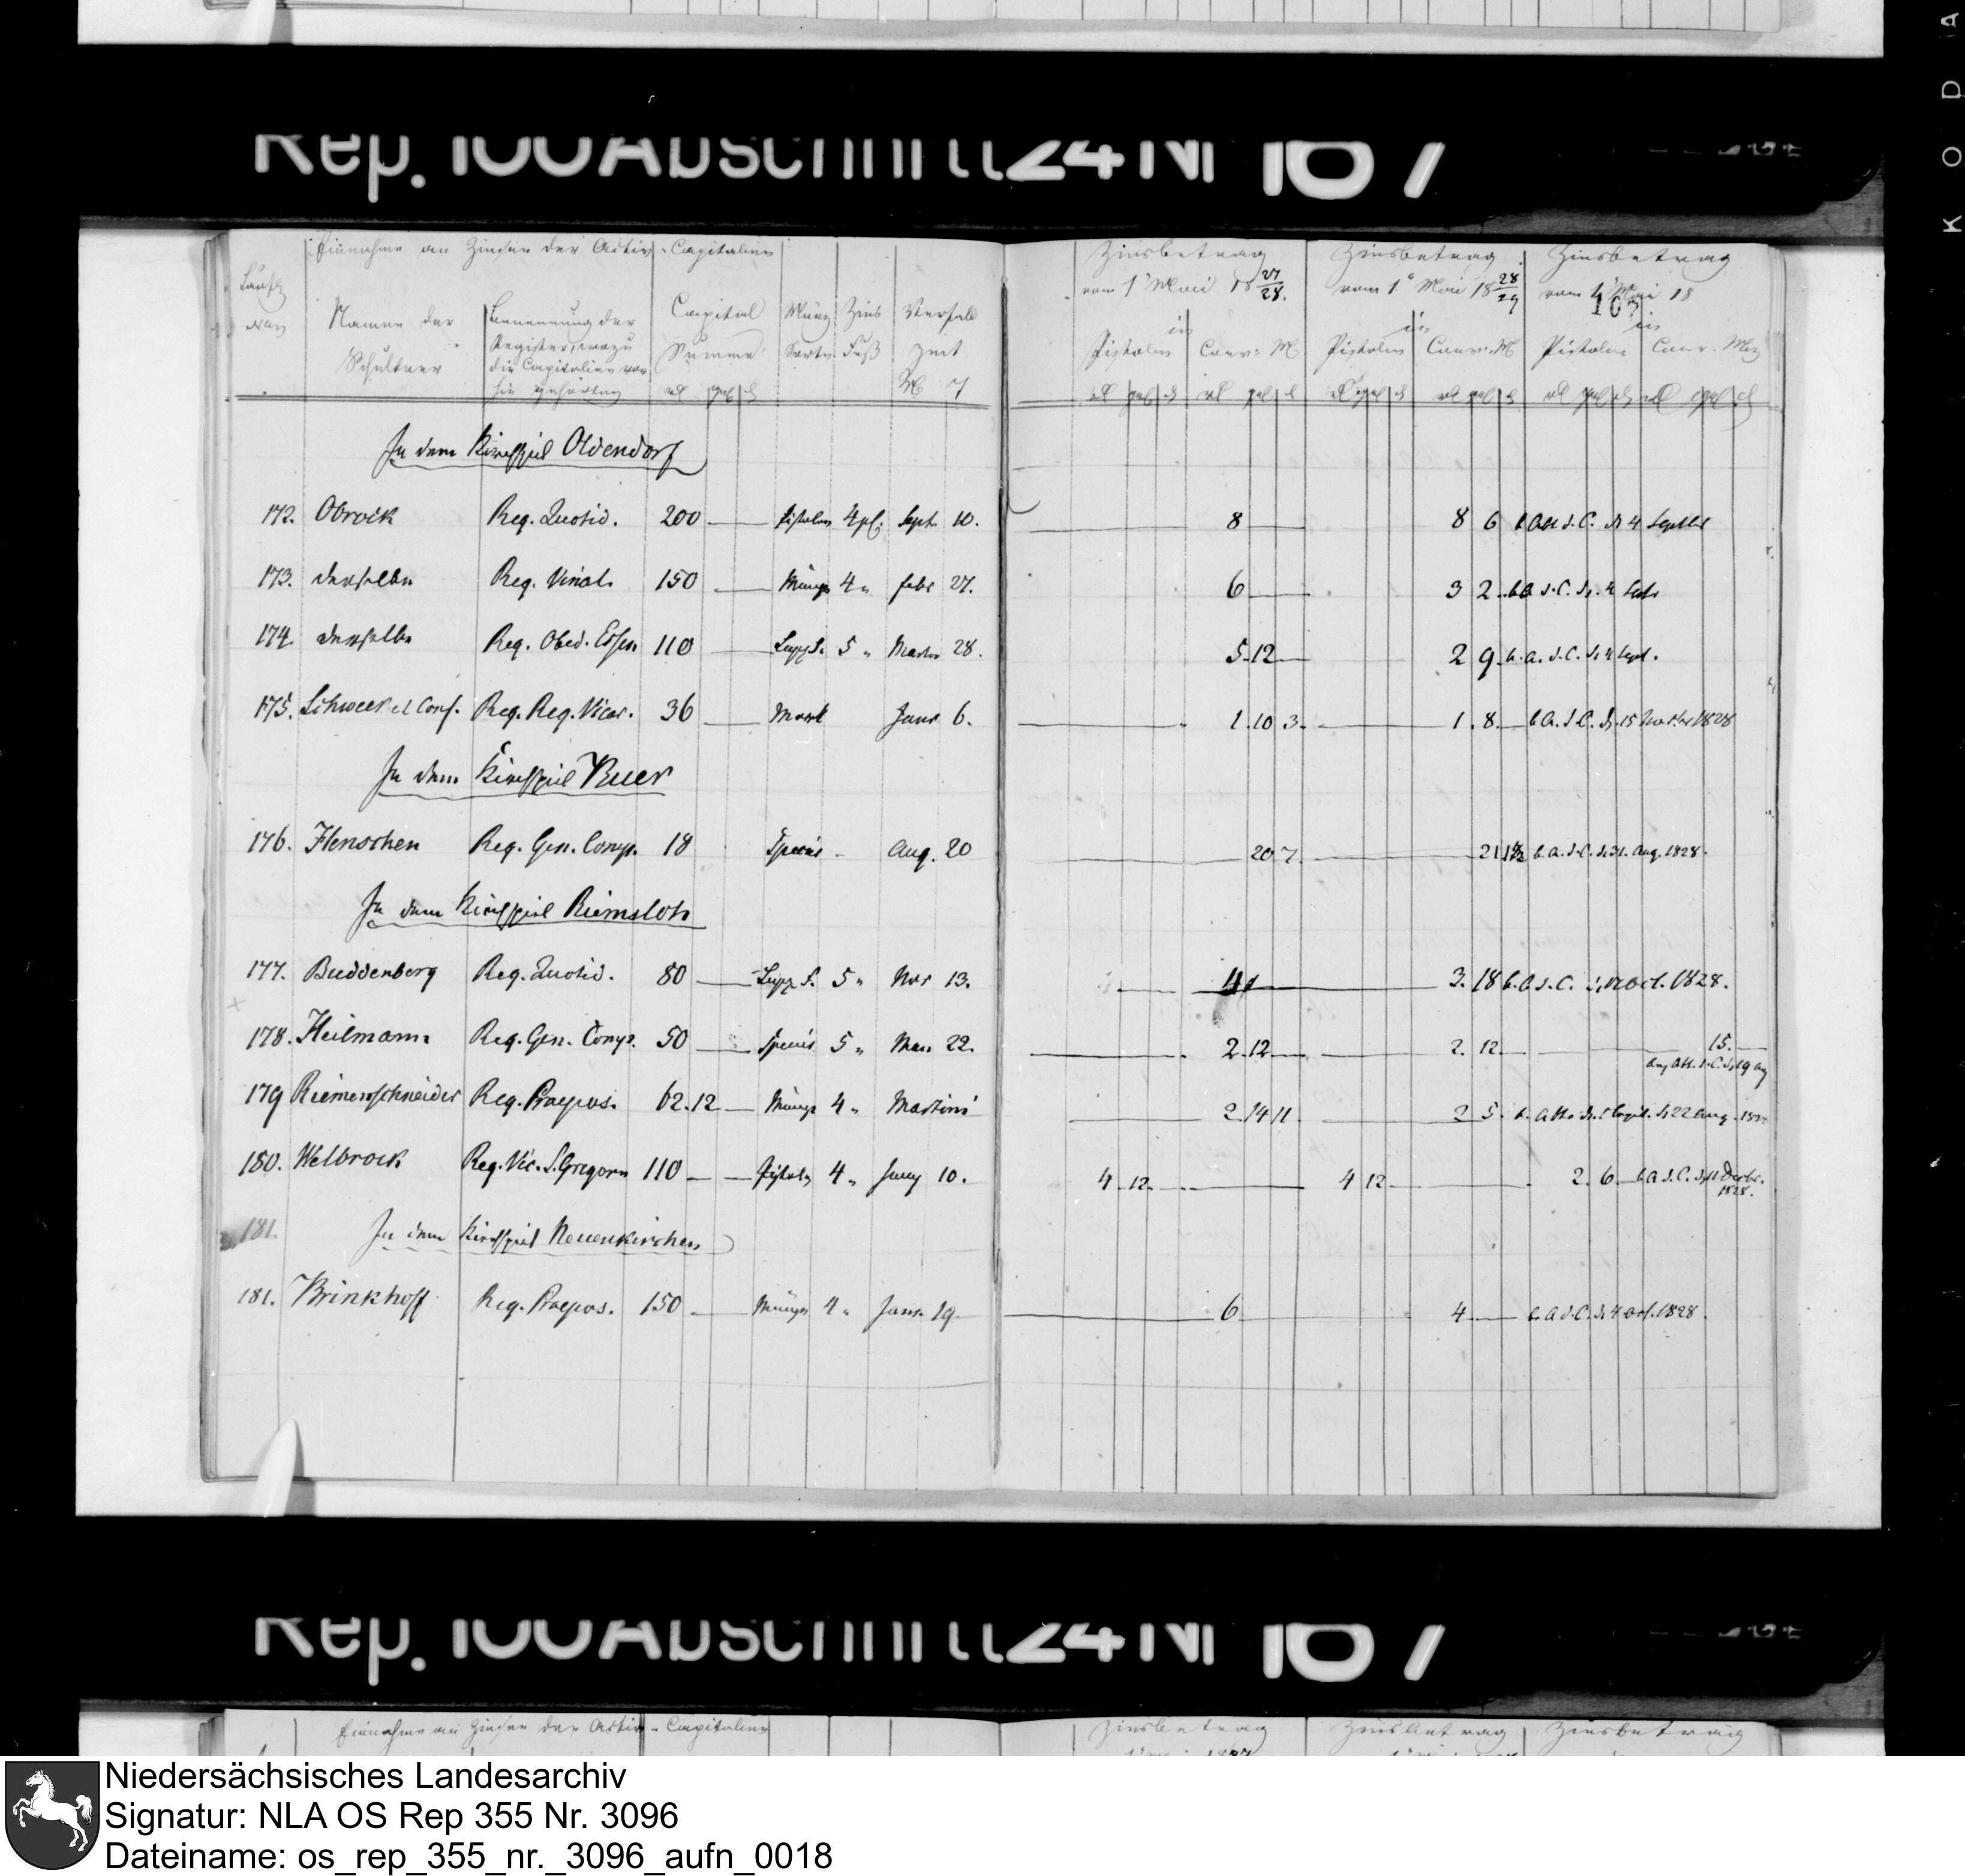 KODA
Rep. 100 Abschnitt 24 Nr 167
Einnahme an Zinsen der Activ-Capitalien
Laufd
Namen der Schuldner
Benennung der Register, wozu die Capitalien vor hin gehörten
Capital Summe
Münz Sorte
Zins Fuß
Verfall Zeit
Zinsbetrag vom 1 Mai 18 27/28.
Zinsbetrag vom 1 Mai 18 28/29
Zinsbetrag vom 1 Mai 18
167
in in in
Pistolen Conv: M Pistolen Conv: M Pistolen Conv. Mz
In dem Kirchspiel Oldendorf
172. Obrock Reg. Quotid. 200 Pistolen 4 pC. Sept. 10. 8 8 6 4 Septbr
173. derselbe Reg. Vinat. 150 Münze 4 " Febr 27. 6 3 2 4 Sept
174. derselbe Reg. Obed. Essen 110 5 " Martii 28. 5. 12 2 9 4 Sept.
175. Schweer et Cons. Reg. Reg. Vicar. 36 Janr 6. 1. 10 3. 1. 8. b. A. d. C. d. 15 1828
In dem Kirchspiel Buer
176. Henschen Reg. Gen. Comp. 18 Species - Aug. 20 20 7. 21 b. a. d. C. d. 31. Aug. 1828.
In dem Kirchspiel Riemsloh
177. Buddenberg Reg. Quotid. 80 5 " Nov 13. 4 3. 18 b. a. d. C. Oct. 1828.
178. Heilmann Reg. Gen. Comp. 50 Species 5 " 22. 2. 12 2. 12 15. 19 Aug
179 Riemenschneider Reg. Praepos. 62. 12 Münze 4 " Martini 2. 14 11. 2 5. 22 Aug.
180. Welbrock Reg. Vic. S. Gregorii 110 Pistolen 4 " Juny 10. 4. 12. 4 12. 2. 6. b. a. d. C. 1828.
181. In dem Kirchspiel Neuenkirchen
181. Brinkhoff Reg. Praepos. 150 Münze 4 " Janr. 19. 6 4 b. A. d. C. d. 4 Oct. 1828.
Rep. 100 Abschnitt 24 Nr 167
Einnahme an Zinsen der Activ-Capitalien
Zinsbetrag Zinsbetrag Zinsbetrag
Niedersächsisches Landesarchiv
Signatur: NLA OS Rep 355 Nr. 3096
Dateiname: os_rep_355_nr._3096_aufn_0018